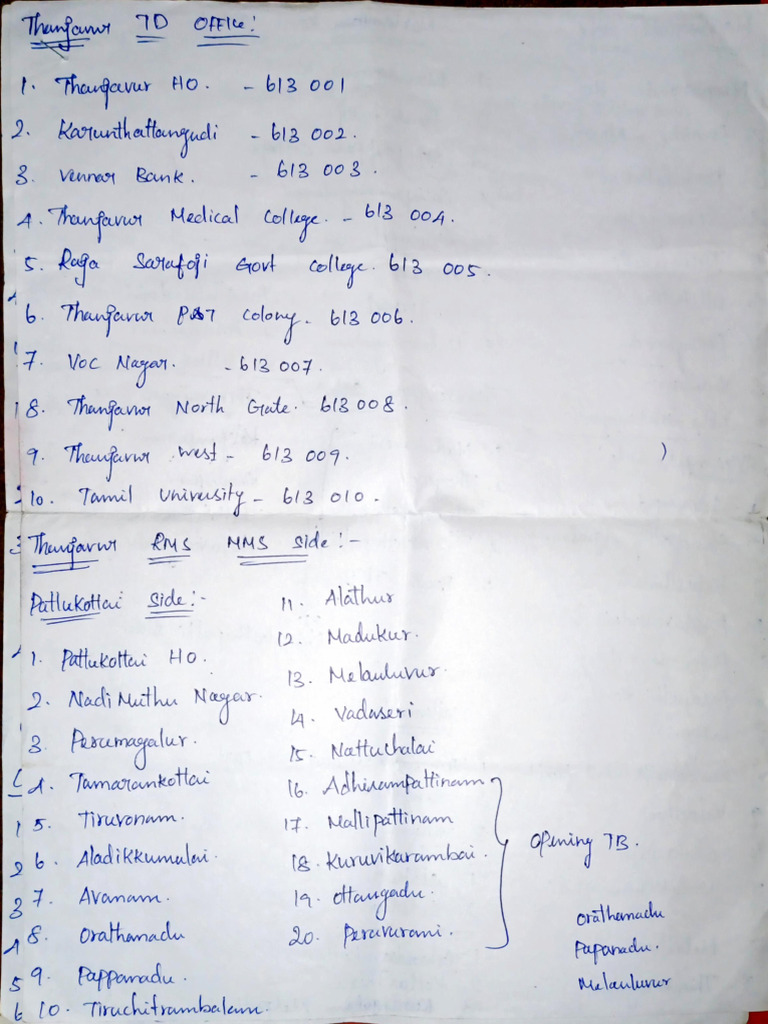 Thanjavur TD Office:
1. Thanjavur HO. - 613 001
2. Karunthattangudi - 613 002.
3. Vennar Bank. - 613 003.
4. Thanjavur Medical College. - 613 004.
5. Raja Sarafoji Govt College. 613 005.
6. Thanjavur P&T Colony. 613 006.
7. VOC Nagar. - 613 007.
8. Thanjavur North Gate. 613 008.
9. Thanjavur West - 613 009.
10. Tamil University - 613 010.
Thanjavur RMS MMS Side:-
Pattukottai Side:-
1. Pattukottai HO.
2. Nadi Muthu Nagar.
3. Perumagalur.
4. Tamarankottai
5. Tiruvonam.
6. Aladikkumulai.
7. Avanam.
8. Orathanadu
9. Pappanadu.
10. Tiruchitrambalam.
11. Alathur
12. Madukur.
13. Melauluvur.
14. Vadaseri
15. Nattuchalai
16. Adhirampattinam
17. Mallipattinam
18. Kuruvikarambai.
19. Ottangadu.
20. Peravurani.
Opening TB.
Orathanadu
Papanadu.
Melauluvur